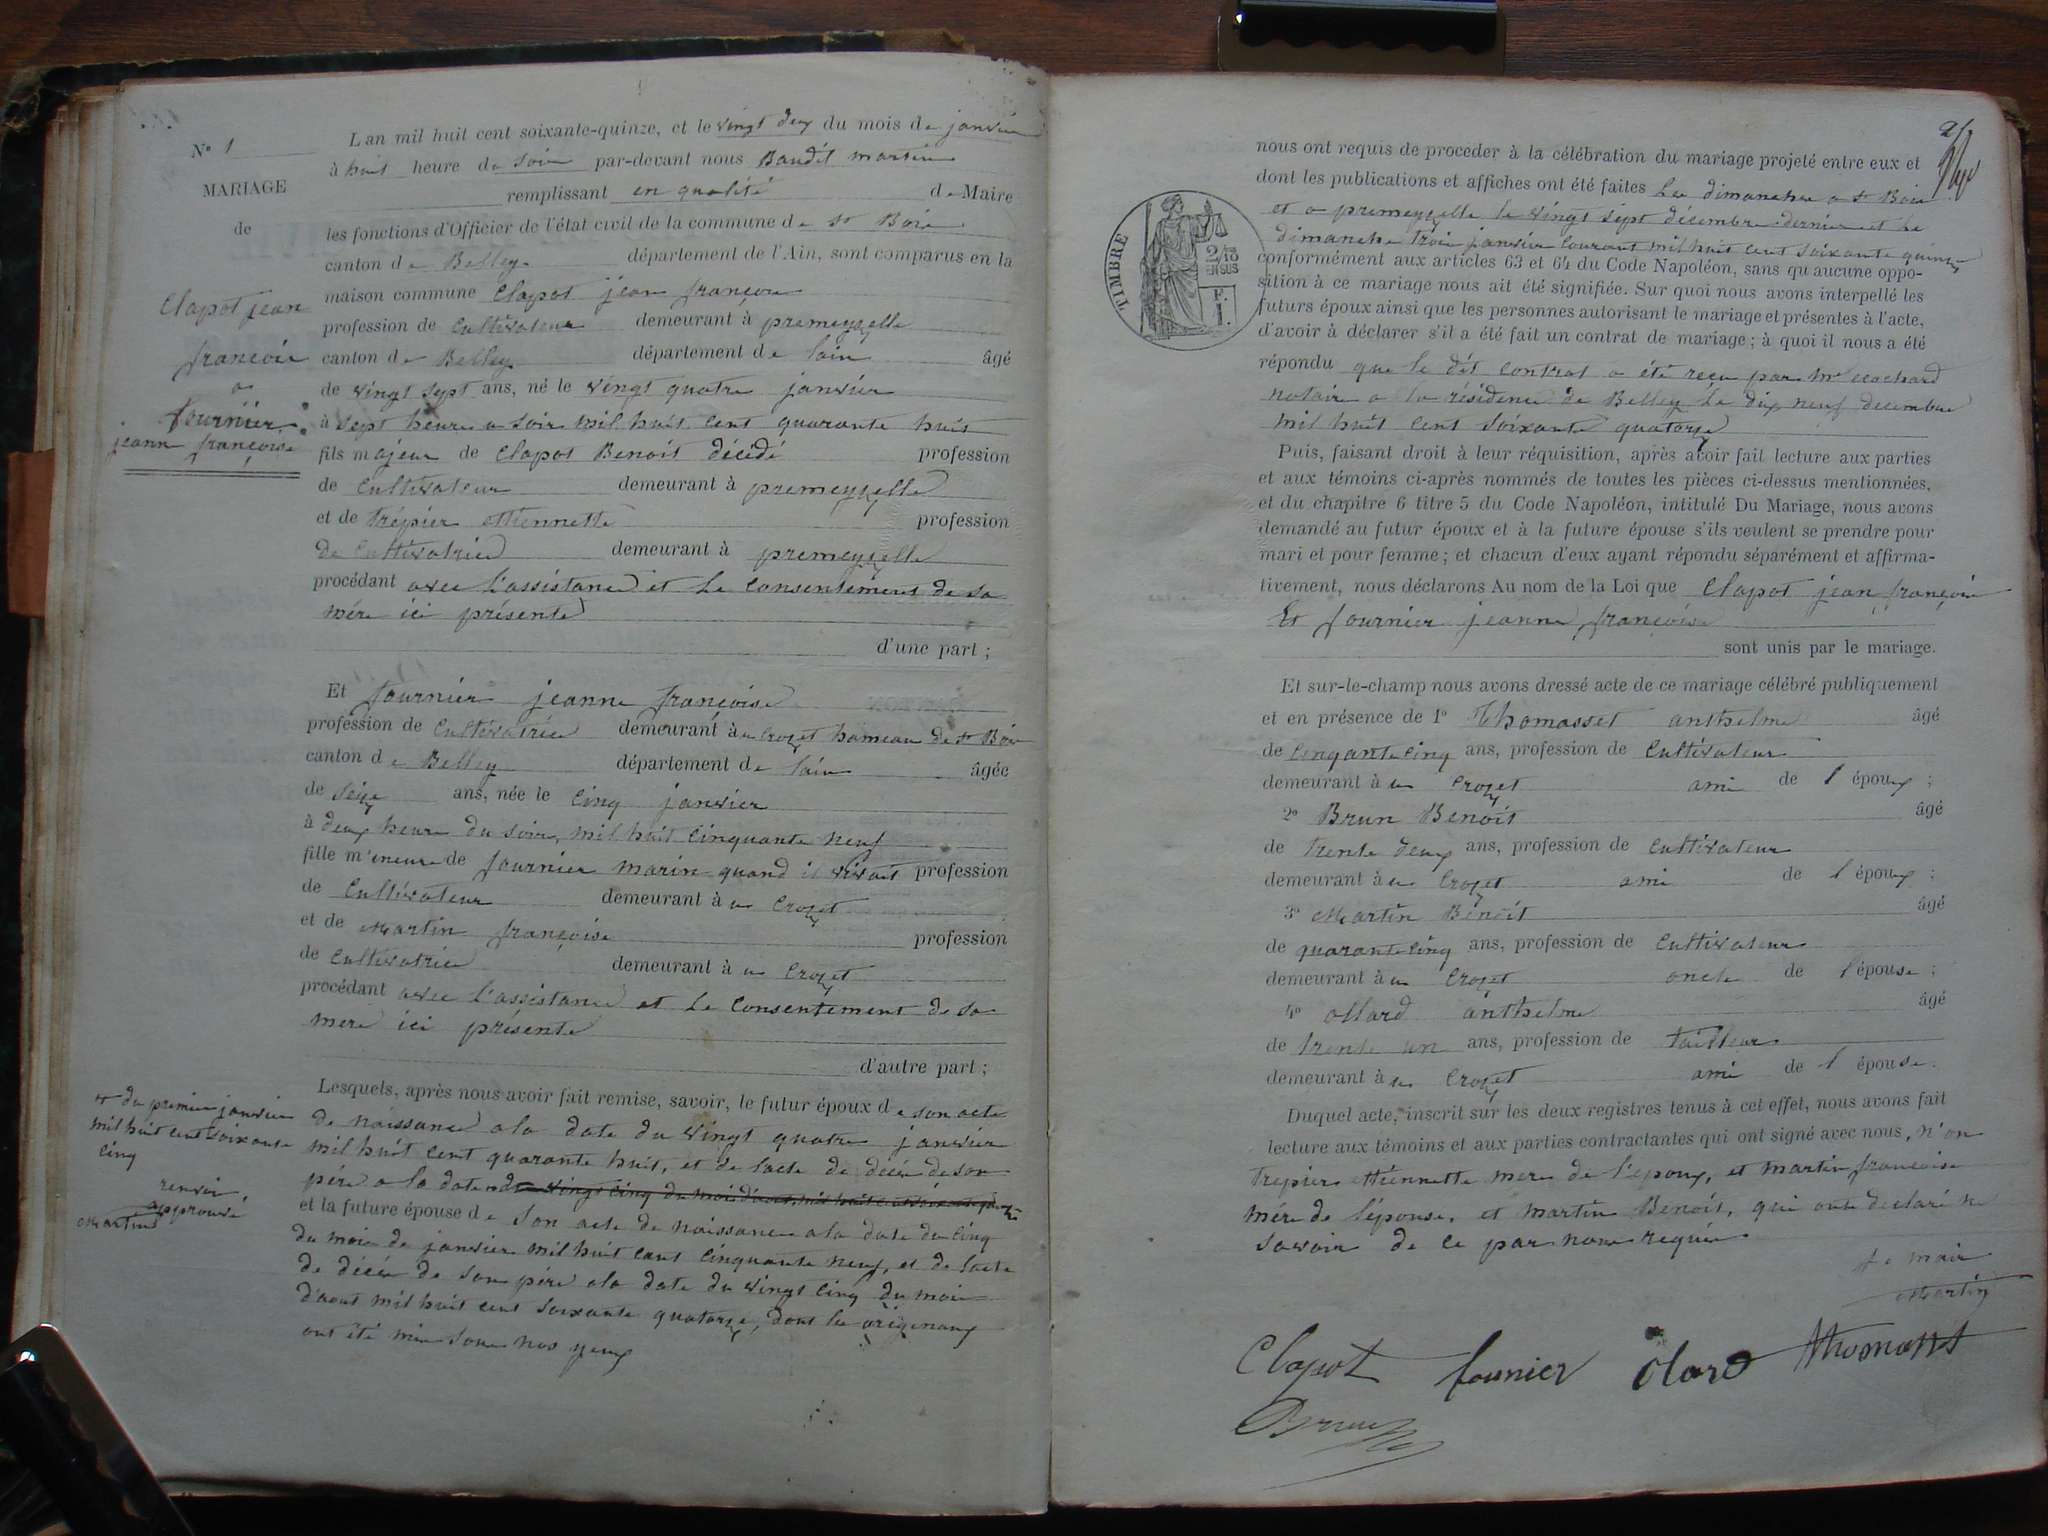 N° 1
MARIAGE
de
Clapot jean
françois
a
fournier
jeanne françoise
L an mil huit cent soixante-quinze, et le vingt deux du mois de janvier
à huit heure du soir par-devant nous Baudit martin
remplissant en qualité de Maire
les fonctions d'Officier de l'état civil de la commune de st Bois
canton de Belley département de l'Ain, sont comparus en la
maison commune Clapot jean françois
profession de Cultivateur demeurant à premeyzelle
canton de Belley département de lain âgé
de vingt sept ans, né le vingt quatre janvier
à sept heure a soir mil huit cent quarante huit
fils majeur de Clapot Benoit décédé profession
de Cultivateur demeurant à premeyzelle
et de trépier ettiennette profession
de Cultivatrice demeurant à premeyzelle
procédant avec l'assistance et le consentement de sa
mére ici présente
d'une part ;
Et fournier jeanne françoise
profession de Cultivatrice demeurant à au Crozet hameau de st Bois
canton de Belley département de lain âgée
de seize ans, née le cinq janvier
à deux heure du soir, mil huit cinquante neuf
fille m'ineure de fournier marin quand il vivait profession
de Cultivateur demeurant à au Crozet
et de Martin françoise profession
de Cultivatrice demeurant à au Crozet
procédant avec l'assistance et le consentement de sa
mere ici présente
d'autre part ;
Lesquels, après nous avoir fait remise, savoir, le futur époux de son acte
de naissance a la date du vingt quatre janvier
mil huit cent quarante huit, et de lacte de décès de son
père a la date du vingt cinq du mois d'aout mil huit cent soixante
et la future épouse de son acte de naissance a la date du cinq
du mois de janvier mil huit cent cinquante neuf, et de lacte
de décès de son père a la date du vingt cinq du mois
d'aout mil huit cent soixante quatorze, dont les origenaux
ont été mis sous nos yeux
et du premier janvier
mil huit cent soixante
cinq
renvoi
approuvé
Martin
2/
nous ont requis de procéder à la célébration du mariage projeté entre eux et
dont les publications et affiches ont été faites les dimanches a st Bois
et a premeyzelle le vingt sept décembre dernier et le
dimanche trois janvier courant mil huit cent soixante quinze
TIMBRE
2/10
EN SUS
F.
1.
conformément aux articles 63 et 64 du Code Napoléon, sans qu'aucune oppo-
sition à ce mariage nous ait été signifiée. Sur quoi nous avons interpellé les
futurs époux ainsi que les personnes autorisant le mariage et présentes à l'acte,
d'avoir à déclarer s'il a été fait un contrat de mariage ; à quoi il nous a été
répondu que le dit contrat a été reçu par me
notair a la résidence de Belley le dix neuf decembre
mil huit cent soixante quatorze
Puis, faisant droit à leur réquisition, après avoir fait lecture aux parties
et aux témoins ci-après nommés de toutes les pièces ci-dessus mentionnées,
et du chapitre 6 titre 5 du Code Napoléon, intitulé Du Mariage, nous avons
demandé au futur époux et à la future épouse s'ils veulent se prendre pour
mari et pour femme ; et chacun d'eux ayant répondu séparément et affirma-
tivement, nous déclarons Au nom de la Loi que Clapot jean françois
Et fournier jeanne françoise
sont unis par le mariage.
Et sur-le-champ nous avons dressé acte de ce mariage célébré publiquement
et en présence de 1° Thomasset anthelme âgé
de cinqante cinq ans, profession de Cultivateur
demeurant à au Crozet ami de l époux ;
2° Brun Benoit âgé
de trente deux ans, profession de Cultivateur
demeurant à au Crozet ami de l époux ;
3° Martin Benoit âgé
de quarante cinq ans, profession de Cultivateur
demeurant à au Crozet oncle de l'épouse ;
4° ollard anthelme âgé
de trente un ans, profession de tailleur
demeurant à au Crozet ami de l épouse.
Duquel acte, inscrit sur les deux registres tenus à cet effet, nous avons fait
lecture aux témoins et aux parties contractantes qui ont signé avec nous, n'on
trepier ettiennette mere de l'epoux, et martin françoise
mére de l'épouse, et martin Benoit, qui ont declaré ne
savoir de ce par nous requis
Le mair
Martin
Clapot fournier Olard Thomasst
Brun